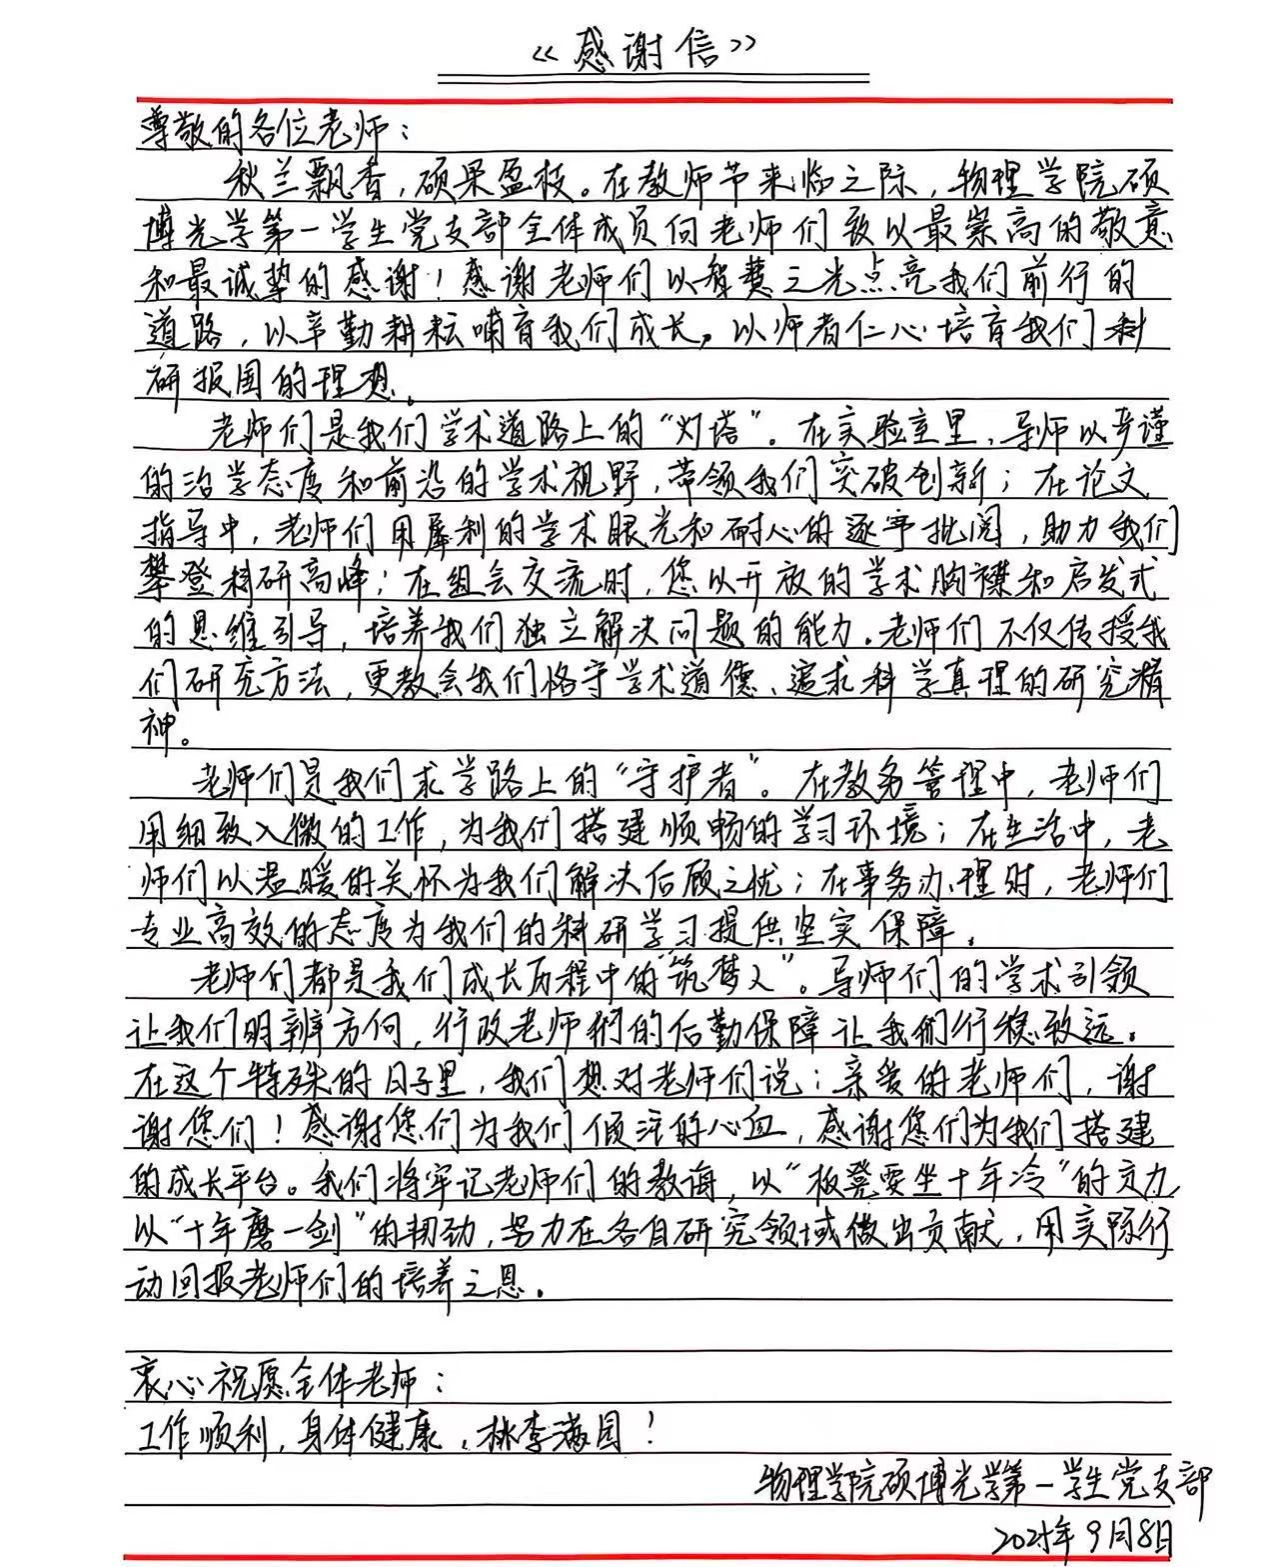 《感谢信》
尊敬的各位老师：
秋兰飘香，硕果盈枝。在教师节来临之际，物理学院硕
博光学第一学生党支部全体成员向老师们致以最崇高的敬意
和最诚挚的感谢！感谢老师们以智慧之光点亮我们前行的
道路，以辛勤耕耘哺育我们成长，以师者仁心培育我们科
研报国的理想。
老师们是我们学术道路上的“灯塔”。在实验室里，导师以严谨
的治学态度和前沿的学术视野，带领我们突破创新；在论文
指导中，老师们用犀利的学术眼光和耐心的逐字批阅，助力我们
攀登科研高峰；在组会交流时，您以开放的学术胸襟和启发式
的思维引导，培养我们独立解决问题的能力。老师们不仅传授我
们研究方法，更教会我们恪守学术道德、追求科学真理的研究精
神。
老师们是我们求学路上的“守护者”。在教务管理中，老师们
用细致入微的工作，为我们搭建顺畅的学习环境；在生活中，老
师们以温暖的关怀为我们解决后顾之忧；在事务办理时，老师们
专业高效的态度为我们的科研学习提供坚实保障。
老师们都是我们成长历程中的“筑梦人”。导师们的学术引领
让我们明辨方向，行政老师们的后勤保障让我们行稳致远。
在这个特殊的日子里，我们想对老师们说：亲爱的老师们，谢
谢您们！感谢您们为我们倾注的心血，感谢您们为我们搭建
的成长平台。我们将牢记老师们的教诲，以“板凳要坐十年冷”的定力，
以“十年磨一剑”的韧劲，努力在各自研究领域做出贡献，用实际行
动回报老师们的培养之恩。
衷心祝愿全体老师：
工作顺利，身体健康，桃李满园！
物理学院硕博光学第一学生党支部
2025年9月8日